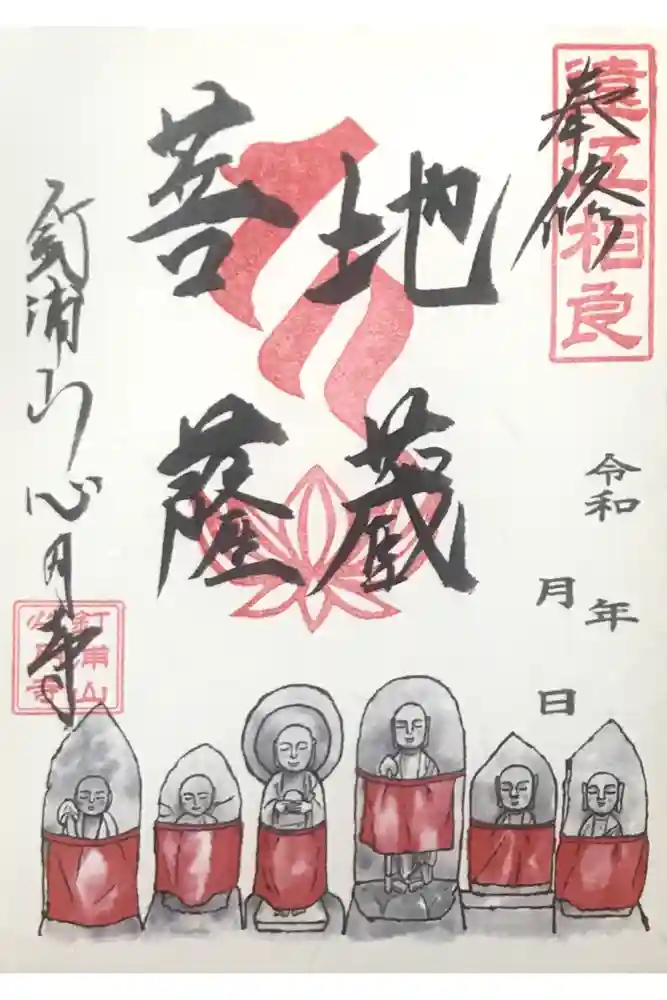 遠江相良
奉修
地蔵
菩薩
令和 年
月 日
釘浦山心月寺
釘浦山
心月寺